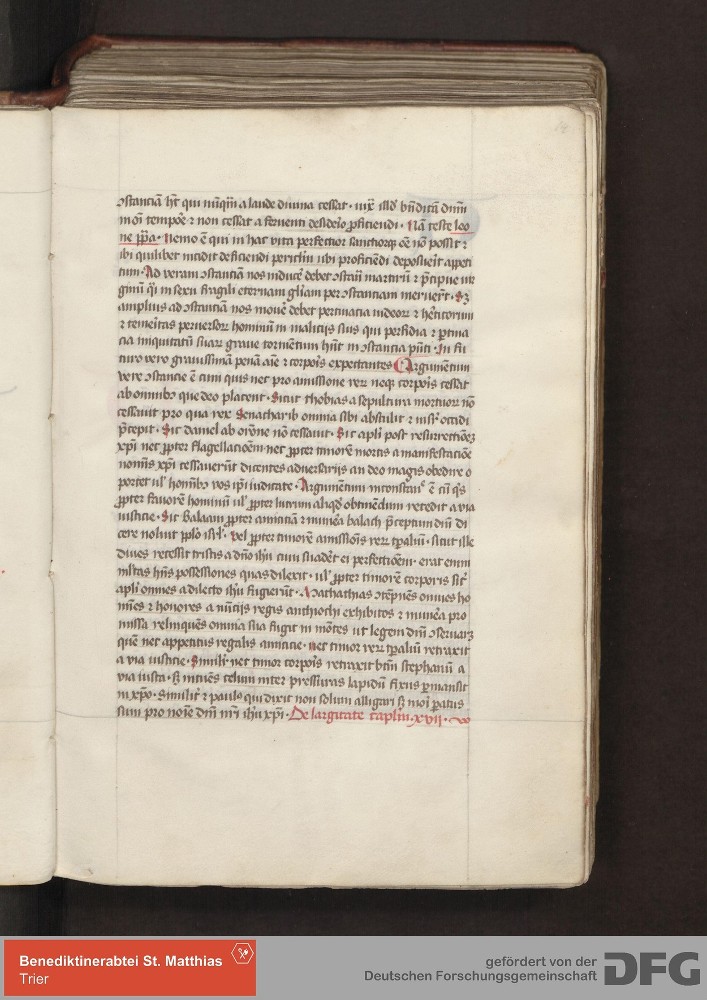 ↄstanciā ht̄ qui nūq̄m̄ a laude diuina cessat · iux̄ illd̄ bn̄dicā dn̄m
in oī tempoꝛe ⁊ non cessat a feruenti desideꝛio ꝓficiendi · Nā teste leo
ne pp̄a · Nemo ē qui in hac vita perfectior sanctiorqꝫ eē nō possit ⁊
ibi quilibet incidit deficiendi periclm̄ ubi proficiēdi deposueꝛit appeti
tum · Ad veram ↄstantiā nos induceꝛe debet ↄstan̄ martirū ⁊ p̄cipue uir
ginū q̄ in sexu fragili eternam gl̄iam per ↄstanciam meruer̄t · Sꝫ
amplius ad ↄstanciā nos mouē debet pertinacia iudeoꝝ ⁊ hēticorum
⁊ temeꝛitas peruersoꝝ hominū in malicijs suis qui perfidia ⁊ ꝑtina
cia iniquitatū suaꝝ graue tormētum hn̄t in ↄstancia pn̄ti · In fu
turo vero grauissimā penā aīe ⁊ corpoꝛis expectantes Argumētum
vere ↄstancie ē cum quis nec pro amissione reꝝ neqꝫ corpoꝛis cessat
ab omnibꝰ que deo placent · Sicut thobias a sepultura mortuoꝝ nō
cessauit pro qua rex Senacharib omnia sibi abstulit ⁊ iusſ occidi
p̄cepit · Sic daniel ab orōne nō cessauit · Sic apl̄i post resurrectōneꝫ
xp̄i nec ꝓpter flagellacōem nec ꝓpter timorē mortis a manifestacōe
nominis xp̄i cessauerūt dicentes aduersarijs an deo magis obedire o
portet ul̄ hominibꝰ vos ip̄i iudicate · Argumētum inconstan̄ ē cū q̄s
ꝓpter fauorē hominū ul̄ ꝓpter lucrum aliqd̄ obtinēdum recedit a via
iusticie · Sic Balaam ꝓpter amiciciā ⁊ muneꝛa balach p̄ceptum dn̄i di
cere noluit pplo isrl̄ · vel ꝓpter timorē amissiōis reꝝ tꝑaliū · sicut ille
diues recessit tristis a dn̄o ih̄u cum suadeꝛet ei perfectiōem · erat enim
multas hn̄s possessiones quas dilexit · ul̄ ꝓpter timorē corporis sic̄
apl̄i omnes a dilecto ih̄u fugierūt · Mathathias ↄtēpnēs omnes ho
mīes ⁊ honores a nūcijs regis anthiochi exhibitos ⁊ muneꝛa pro
missa relinquēs omnia sua fugit in mōtes ut legem dn̄i ↄseruarꝫ
quē nec appetitus regalis amicicie · nec timor reꝝ tꝑaliū retraxit
a via iusticie · Simili nec timor corpoꝛis retraxit btm̄ stephanū a
via iusta · sꝫ intuēs celum inter pressuras lapidū fixus ꝑmansit
in xp̄o · Similiꝛ ⁊ paulꝰ qui dixit non solum alligari sꝫ moꝛi ꝑatus
sum pro noīe dn̄i nr̄i ih̄u xp̄i · De largitate caplm̄ · xvij ·
Benediktinerabtei St. Matthias
Trier
gefördert von der
Deutschen Forschungsgemeinschaft
DFG